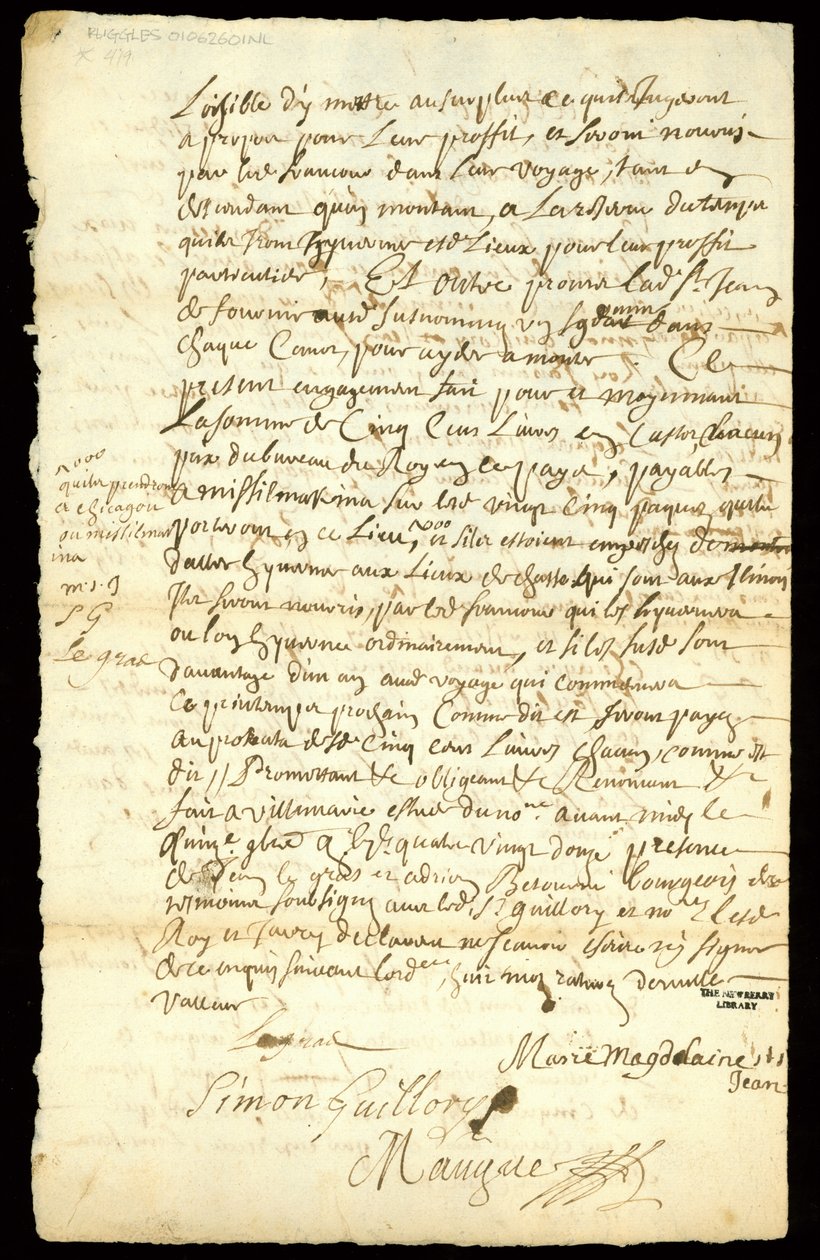 RUGGLES 01062601NL
* 419
Loisible d'y mettre au surplus ce quils Jugeront
a propos pour Leur proffit, et seront nouris
par led francois dans leur voyage, tant en
descendant qu'en montant, a La reserve du temps
quils Iront hyverner esd Lieux pour leur proffit
particulier, Et outre promet lad St Jean
de fournir ausd susnommez un sauvage dans
chaque Canot, pour ayder a monter. Ce
present engagement fait pour et moyennant
La somme de Cinq Cens Livres en Castor Chacun
prix du bureau du Roy en ce pays, payables
a missilmakina sur les vingt cinq paquets quils
porteront en ce Lieu, et silz estoient empeschez de
d'aller hyverner aux Lieux de chasse qui sont aux Ilinois
Ils seront nouris, par led francois qui les hyvernera
ou lon hyverne ordinairement, et si les susd sont
davantage d'un an aud voyage qui commencera
Ce printemps prochain Comme dit est seront payez
au prorata desd Cinq cens Livres chacun, comme est
dit // Promettant &c obligeant &c Renonceant &c
fait a villemarie estude du nore avant midy le
quinze 9bre quatre vingt douze presence
de Jean le gras et adrien Betourné bourgeois
tesmoins soussignez avec led. Sr guillory et nore Lesd
Roy et declarent ne scavoir escrire ny signer
de ce enquis suivant lordce, huit mots rature de nulle
valleur
quils prendront
a chicagou
ou missilmak
ina
m. s. J
S G
Le gras
Legras
Marie Magdelaine st
Jean
Simon Guillory
Maugue
THE NEWBERRY
LIBRARY